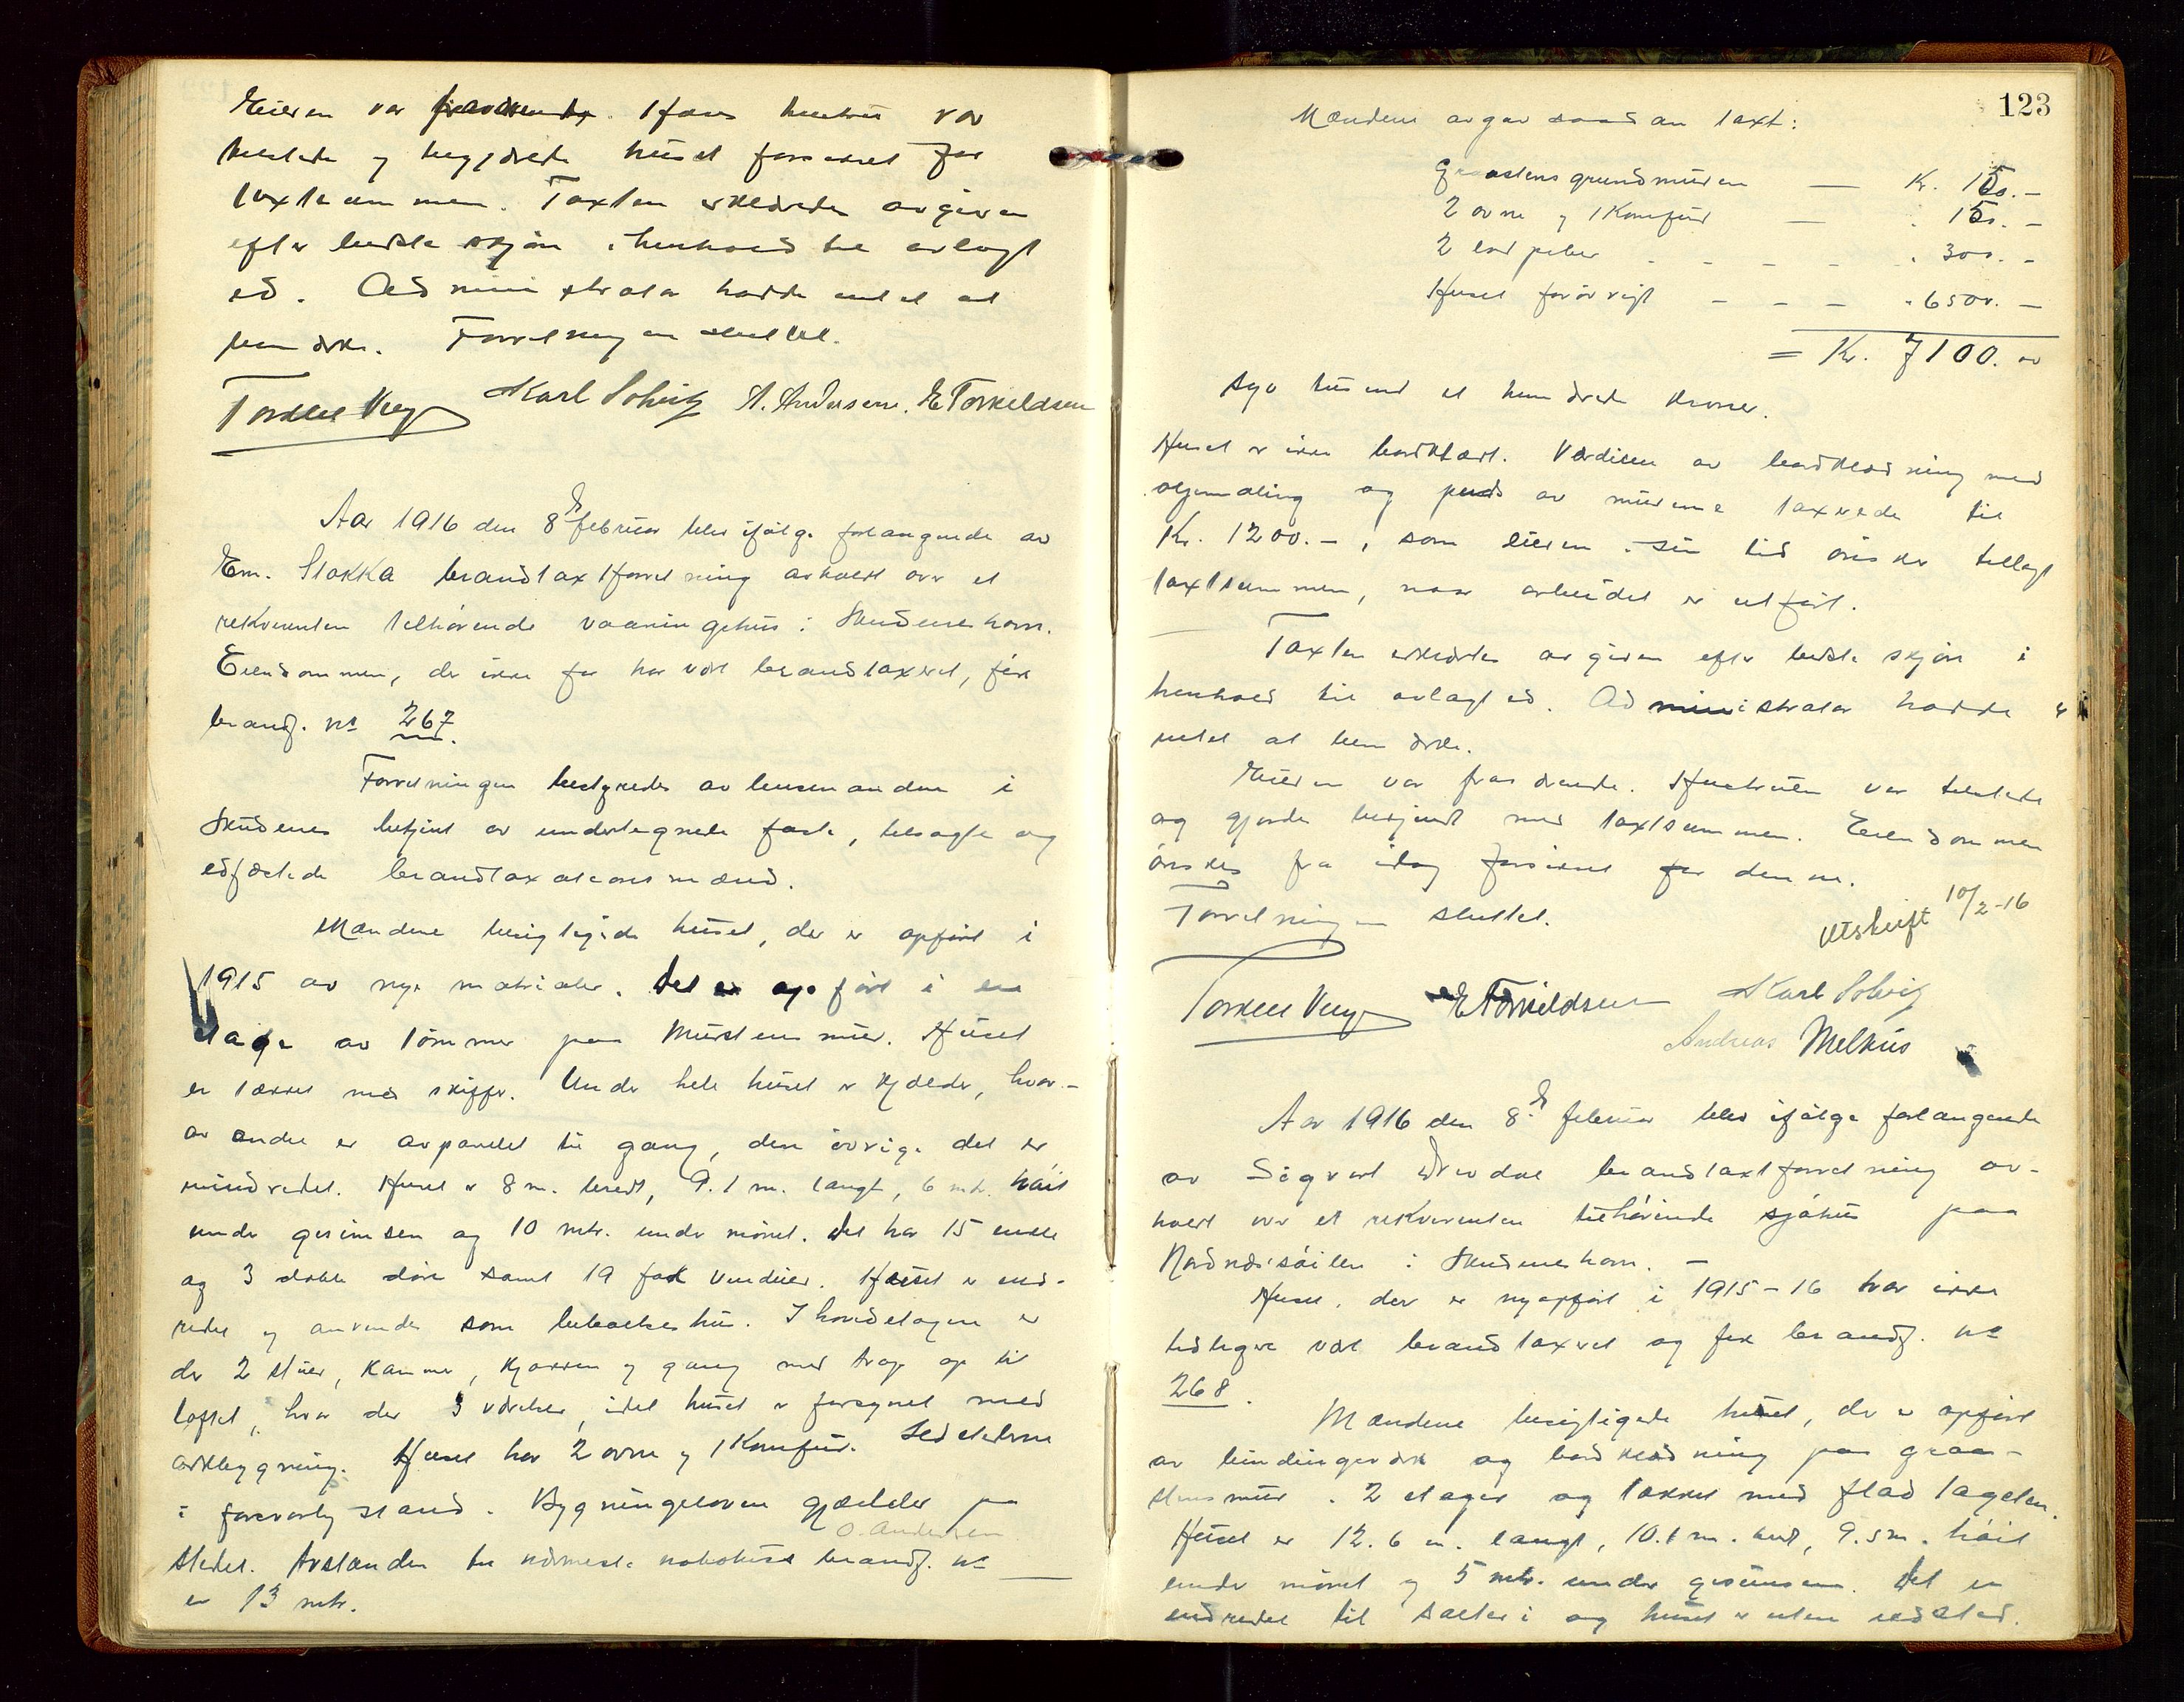 Eieren var fraværende. Hans hustru var
tilstede og begjærede huset forsikret for
taxtsummen. Taxten erklæredes avgiven
efter bedste skjøn i henhold til avlagt
ed. Administrator hadde intet at
bemærke. Forretningen sluttet.
Torkel Vey Karl Solvig A. Andersen. E Torkildsen
Aar 1916 den 8de februar blev ifølge forlangende av
Em. Stokka brandtaxtforretning avholdt over et
rekvirenten tilhørende vaaningshus i Skudeneshavn.
Eiendommen, der ikke før har vært brandtaxeret, fik
brandf. no 267.
Forretningen bestyredes av lensmanden i
Skudenes betjent av undertegnede faste, tilsagte og
edfæstede brandtaxationsmænd.
Mændene besigtigede huset, der er opført i
1915 av nye matrialer. Det er opført i en
etage av tømmer paa Murstensmur. Huset
er tækket med skiffer. Under hele huset er kjælder, hvor-
av endel er avpanelet til gang, den øvrige del er
uindredet. Huset er 8 m. bredt, 9.1 m. langt, 6 mtr. høit
under gesimsen og 10 mtr. under mønet. Det har 15 enkle
og 3 doble døre samt 19 fak vinduer. Huset er ind-
redet og anvendes som beboelseshus. I hovedetagen er
der 2 stuer, kammer, kjøkken og gang med trap op til
loftet, hvor der 3 værelser, idet huset er forsynet med
arkbygning. Huset har 2 ovne og 1 Komfur. Ildstederne
i forsvarlig stand. Bygningsloven gjælder paa
O. Andersen
stedet. Avstanden til nærmeste nabohus brandf. no
er 13 mtr.
123
Mændene avgav saadan taxt:
Graastensgrundmuren — Kr. 150.-
2 ovne og 1 Komfur — " 150.-
2 lyd piber - - - - - " 300.-
Huset forøvrigt - - - " 6500.-
= Kr. 7100. oo
syv tusend et hundrede kroner.
Huset er ikke bordklædt. Værdien av bordklædning med
oljemaling og puds av murene taxerede til
Kr. 1200.-, som eieren i sin tid ønsker tillagt
taxtsummen, naar arbeidet er utført.
Taxten erklæredes avgiven efter bedste skjøn i
henhold til avlagt ed. Administrator hadde
intet at bemærke.
Eieren var fraværende. Hustruen var tilstede
og gjorde bekjendt med taxtsummen. Eiendommen
ønskes fra idag forsikret for denne.
Forretningen sluttet.
Utskrift 10/2-16
Torkel Vey E Torkildsen Karl Solvig
Andreas Melhus
Aar 1916 den 8de februar blev ifølge forlangende
av Sigvart brandtaxtforretning av-
holdt over et rekvirenten tilhørende sjøhus paa
i Skudeneshavn. —
Huset, der er nyopført i 1915-16 har ikke
tidligere vært brandtaxeret og fik brandf. no
268.
Mændene besigtigede huset, der er opført
av bindingsverk og bordklædning paa graa-
stensmur i 2 etager og tækket med flad tagsten.
Huset er 12.6 m. langt, 10.1 m. bredt, 9.5 m. høit
under mønet og 5 mtr. under gesimsen. Det er
indredet til salteri og huset er uten ildsted.